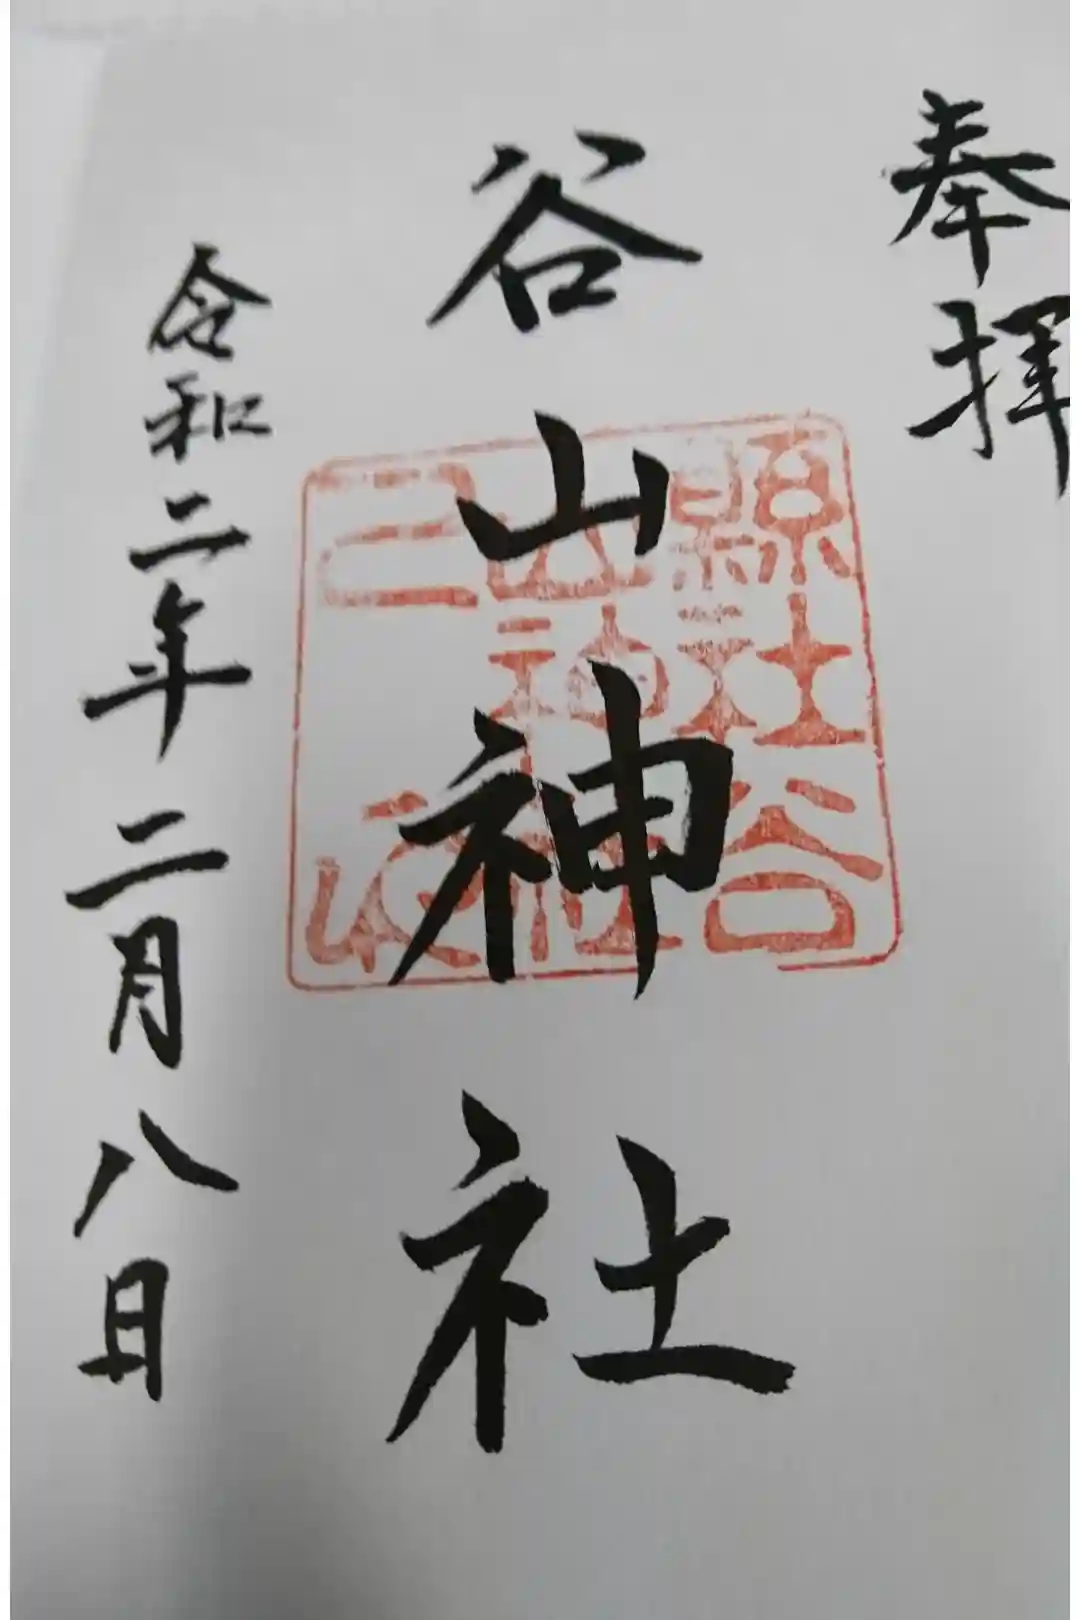 奉拝
谷山神社
縣社谷
山神社
之印
令和二年二月八日